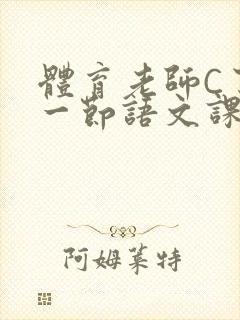 體育老師C
一節語文課
阿姆萊特